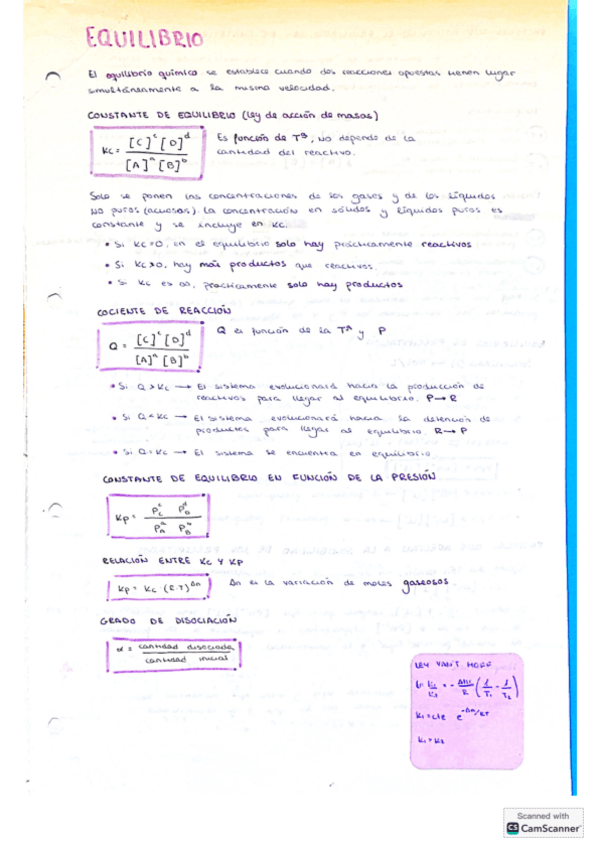 EQUILIBRIO
El equilibrio químico se establece cuando dos reacciones opuestas tienen lugar
simultáneamente a la misma velocidad.
CONSTANTE DE EQUILIBRIO (ley de acción de masas)
Kc = [C]^c [D]^d / [A]^a [B]^b
Es función de Tª, No depende de la
cantidad del reactivo.
Solo se ponen las concentraciones de los gases y de los líquidos
no puros (acuosos). La concentración en sólidos y líquidos puros es
constante y se incluye en Kc.
• Si Kc≈0, en el equilibrio solo hay prácticamente reactivos
• Si Kc>0, hay más productos que reactivos
• Si Kc es ∞, prácticamente solo hay productos
COCIENTE DE REACCIÓN
Q = [C]^c [D]^d / [A]^a [B]^b
Q es función de la Tª y P
• Si Q > Kc → El sistema evolucionará hacia la producción de
reactivos para llegar al equilibrio. P→R
• Si Q < Kc → El sistema evolucionará hacia la obtención de
productos para llegar al equilibrio. R→P
• Si Q = Kc → El sistema se encuentra en equilibrio
CONSTANTE DE EQUILIBRIO EN FUNCIÓN DE LA PRESIÓN
Kp = P_C^c P_D^d / P_A^a P_B^b
RELACIÓN ENTRE Kc Y Kp
Kp = Kc (R·T)^Δn
Δn es la variación de moles gaseosos.
GRADO DE DISOCIACIÓN
α = cantidad disociada / cantidad inicial
LEY VAN'T HOFF
K1 = cte e
Scanned with
CS CamScanner